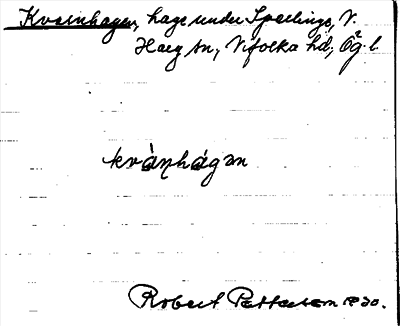 Kvarnhagen, hage under Sperlinge, V.
Harg sn, Vifolka hd, Ög. l.
kvànhágan
Robert Pettersson 1930.